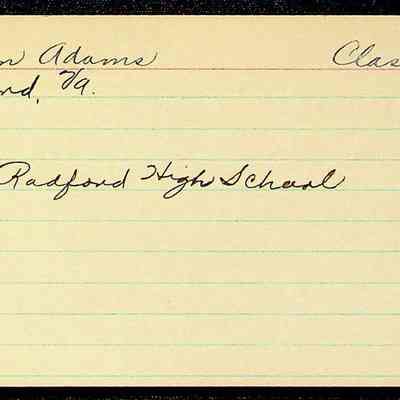 n Adams Clas
nd, Va.
Radford High School